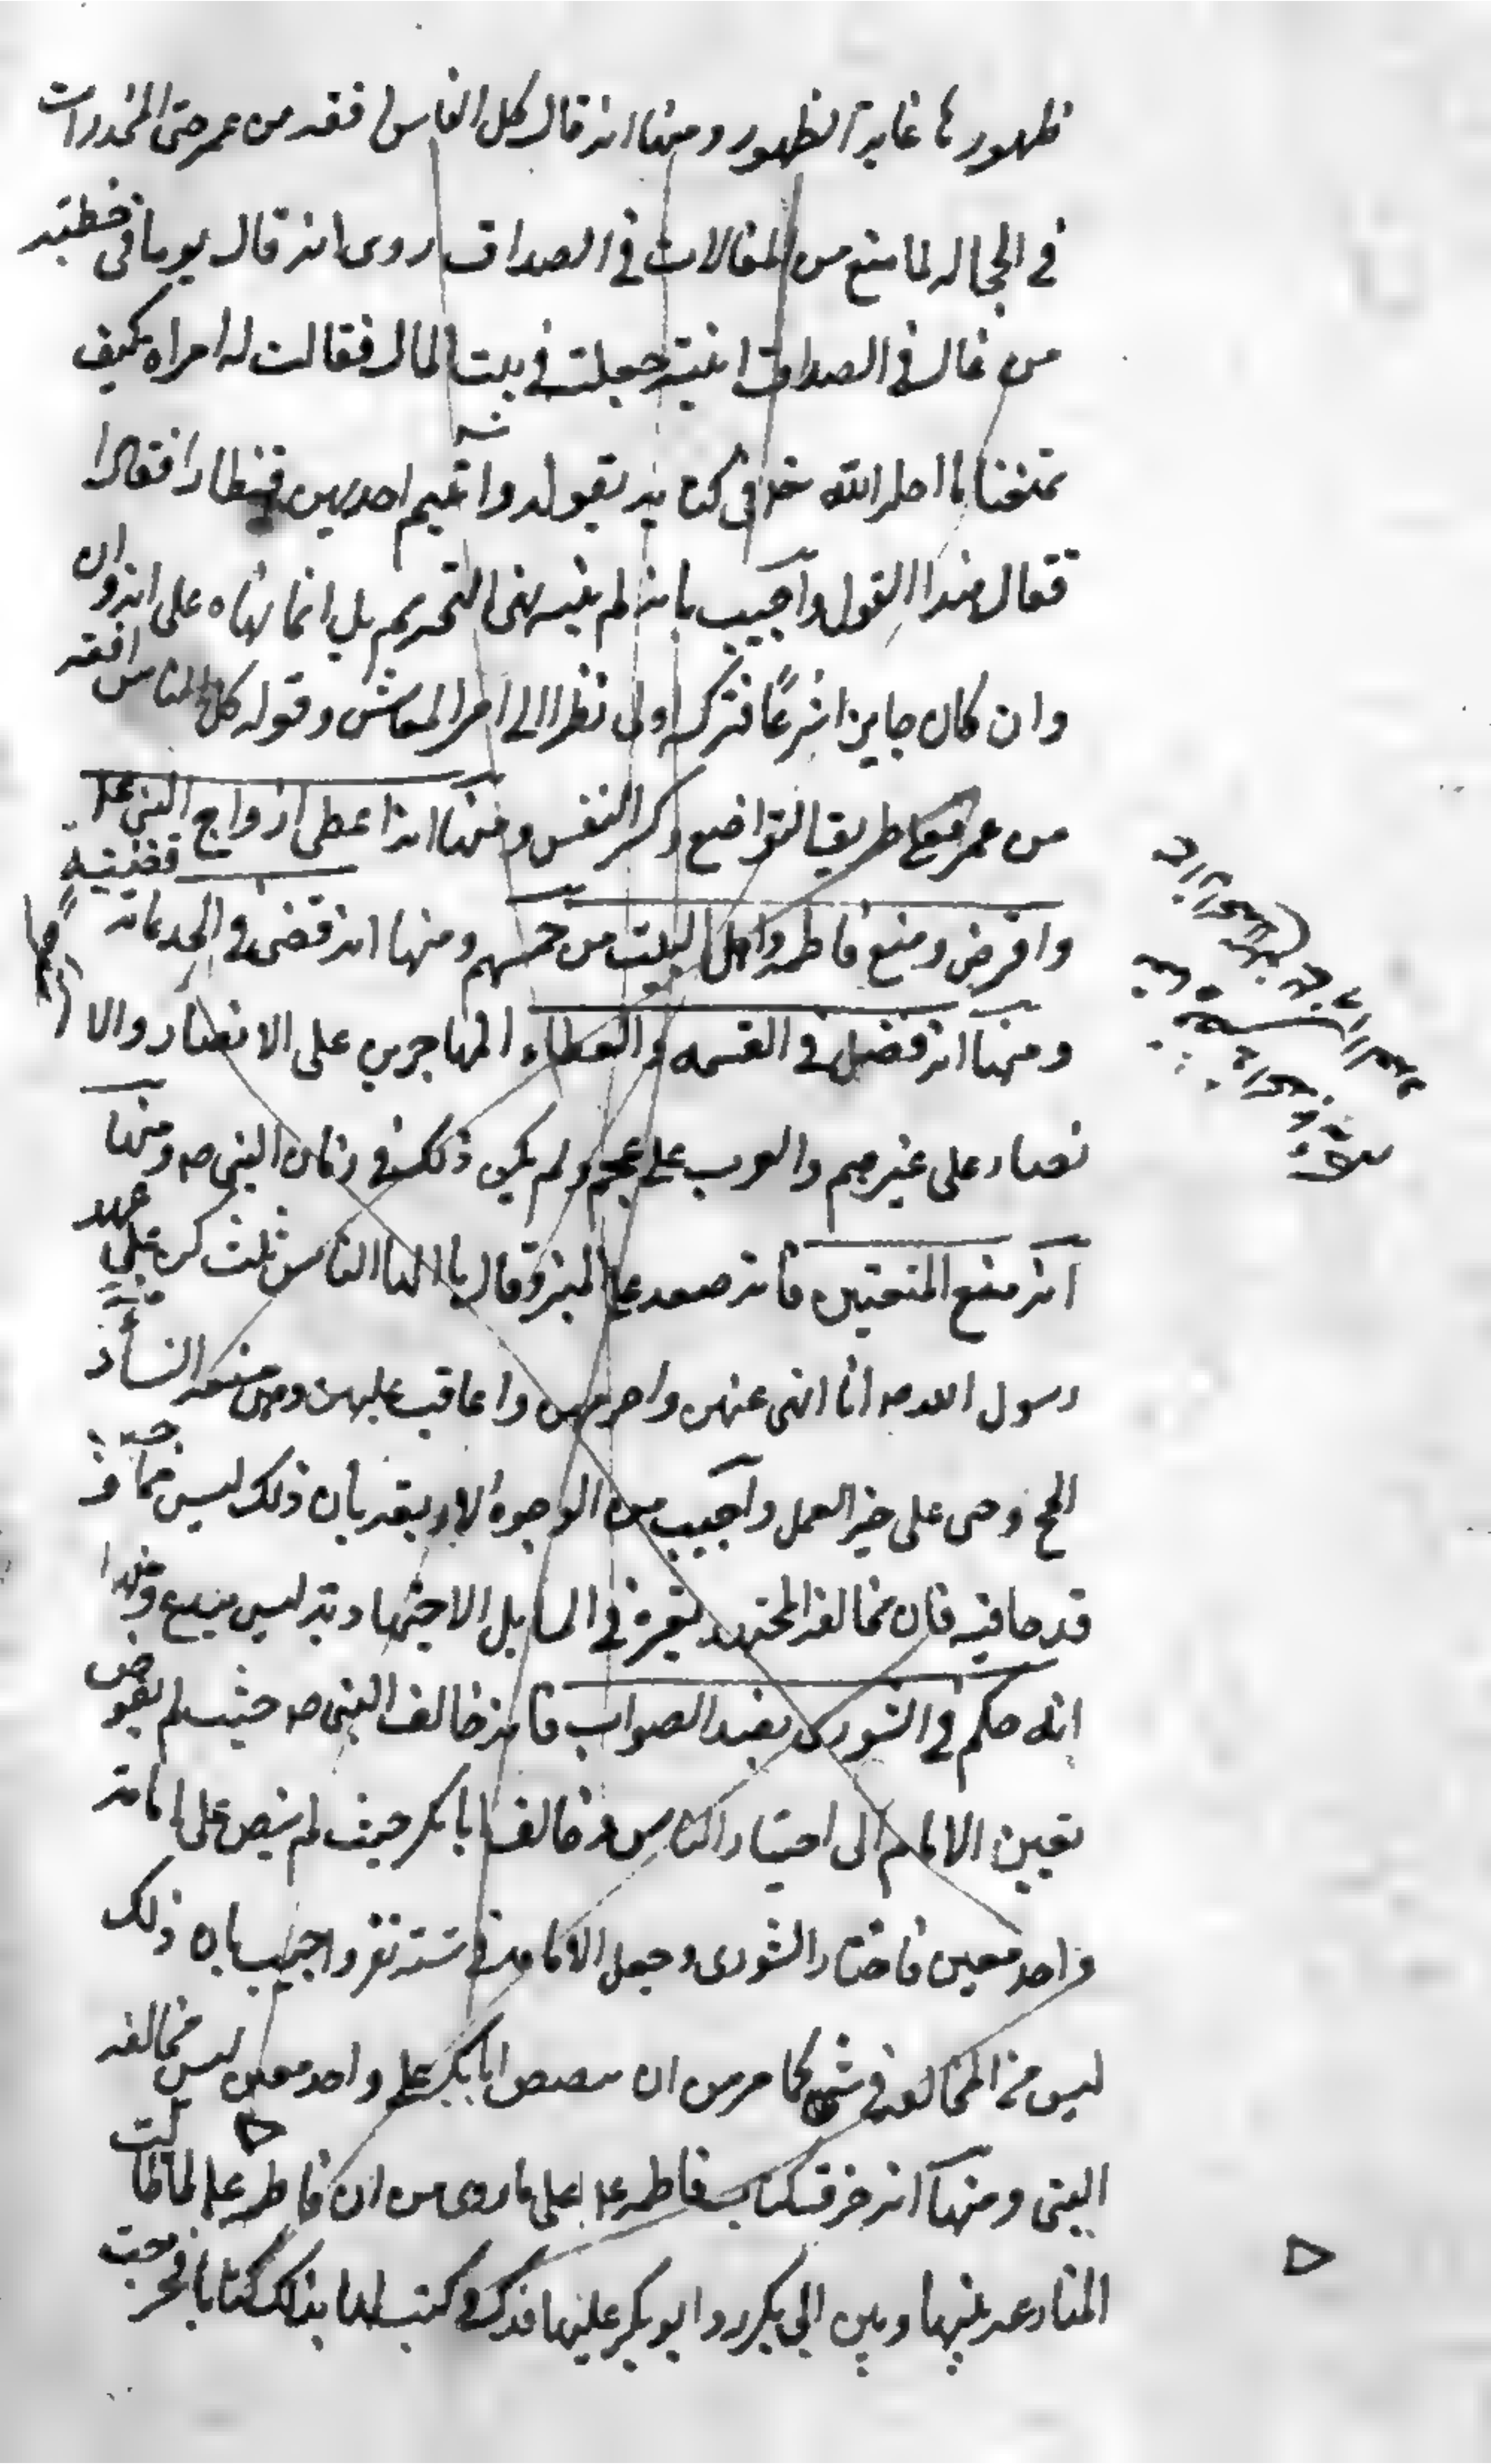 ظهورها غاية الظهور ومنها انه قال كل الناس افقه من عمر حتى المخدرات
في الحجال لما منع من المغالات في الصداق روى انه قال يوما في خطبته
من غال في الصداق ابنته جعلت في بيت المال فقالت له امراه كيف
تمنعنا ما احل الله لنا في كتابه بقوله وآتيتم احديهن قنطارا فقال
فقال هذا القول واجيب بانه لم ينه نهى التحريم بل انما نهاه على انه وان
وان كان جايزا شرعًا فتركه اولى نظرا الى امر المعاش وقوله كل الناس افقه
من عمر فعلى طريق التواضع وكسر النفس ومنها انه اعطى ازواج النبي عل
واقرض ومنع فاطمه واهل البيت من خمسهم ومنها انه قضى في الحد بمائة قضيّية
ومنها انه فضل في القسمه والعطاء المهاجرين على الانصار والا
نصار على غيرهم والعرب على عجم ولم يكن ذلك في زمان النبي صه ومنها
انه منع المتعتين فانه صعد على المنبر وقال يا ايها الناس ثلث كن على عهد
رسول الله صه انا انهى عنهن واحرمهن واعاقب عليهن وهي متعه النسأ و
الحج وحى على خير العمل واجيب من الوجوه الاربعة بأن ذلك ليس مما
قدحا فيه فان مخالفة المجتهد لغيره في المسايل الاجتهادية ليس ببدع ومنها
انه حكم في الشورى بضد الصواب فانه خالف النبي صه حيث لم يفوض
تعيين الامام الى اختيار الناس وخالف ابا بكر حيث لم ينص على امامة
واحد معين فاختار الشورى وجعل الامامة في ستة نفر واجيب بان ذلك
ليس من المخالفة في شي كما مر من ان تنصيص ابا بكر على واحد معين ليس مخالفه
النبي ومنها انه خرق كتاب فاطمه عل على ما روى من ان فاطمه عل لما طالت
المنازعه بينها وبين ابي بكر رد ابو بكر عليها فدك وكتب لها بذلك كتابا فخرجت